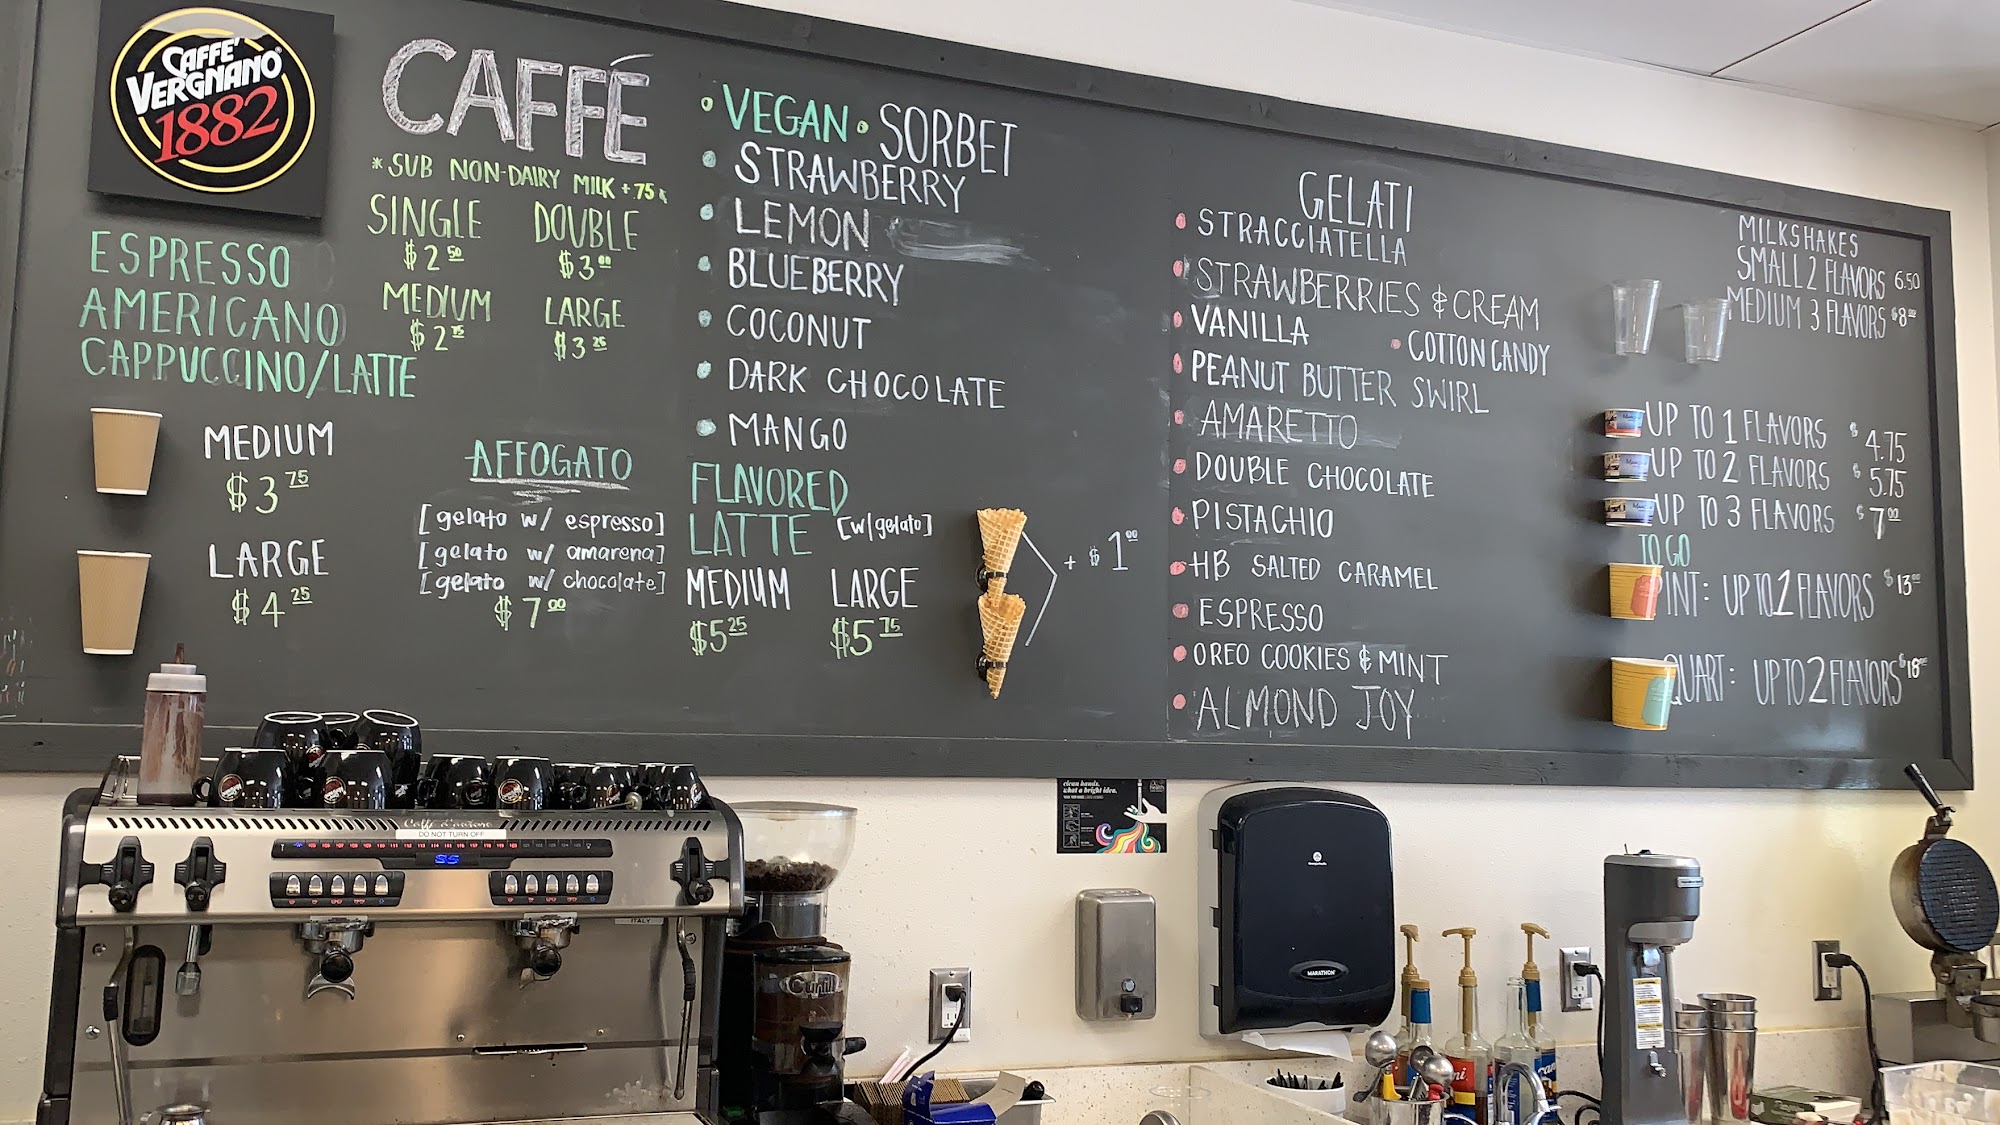 CAFFÈ
VERGNANO
1882
CAFFÉ
* SUB NON-DAIRY MILK +.75
ESPRESSO
SINGLE $2.50
DOUBLE $3.00
AMERICANO
MEDIUM $2.75
LARGE $3.25
CAPPUCCINO/LATTE
MEDIUM
$3.75
LARGE
$4.25
AFFOGATO
[gelato w/ espresso]
[gelato w/ amarena]
[gelato w/ chocolate]
$7.00
• VEGAN • SORBET
STRAWBERRY
LEMON
BLUEBERRY
COCONUT
DARK CHOCOLATE
MANGO
FLAVORED
LATTE [w/gelato]
MEDIUM LARGE
$5.25 $5.75
+ $1.00
GELATI
STRACCIATELLA
STRAWBERRIES & CREAM
VANILLA
• COTTON CANDY
PEANUT BUTTER SWIRL
AMARETTO
DOUBLE CHOCOLATE
PISTACHIO
HB SALTED CARAMEL
ESPRESSO
OREO COOKIES & MINT
ALMOND JOY
MILKSHAKES
SMALL 2 FLAVORS 6.50
MEDIUM 3 FLAVORS $8.00
UP TO 1 FLAVORS $4.75
UP TO 2 FLAVORS $5.75
UP TO 3 FLAVORS $7.00
TO GO
PINT: UP TO 1 FLAVORS $13.00
QUART: UP TO 2 FLAVORS $18.00
DO NOT TURN OFF
ITALY
clean hands.
what a bright idea.
MARATHON